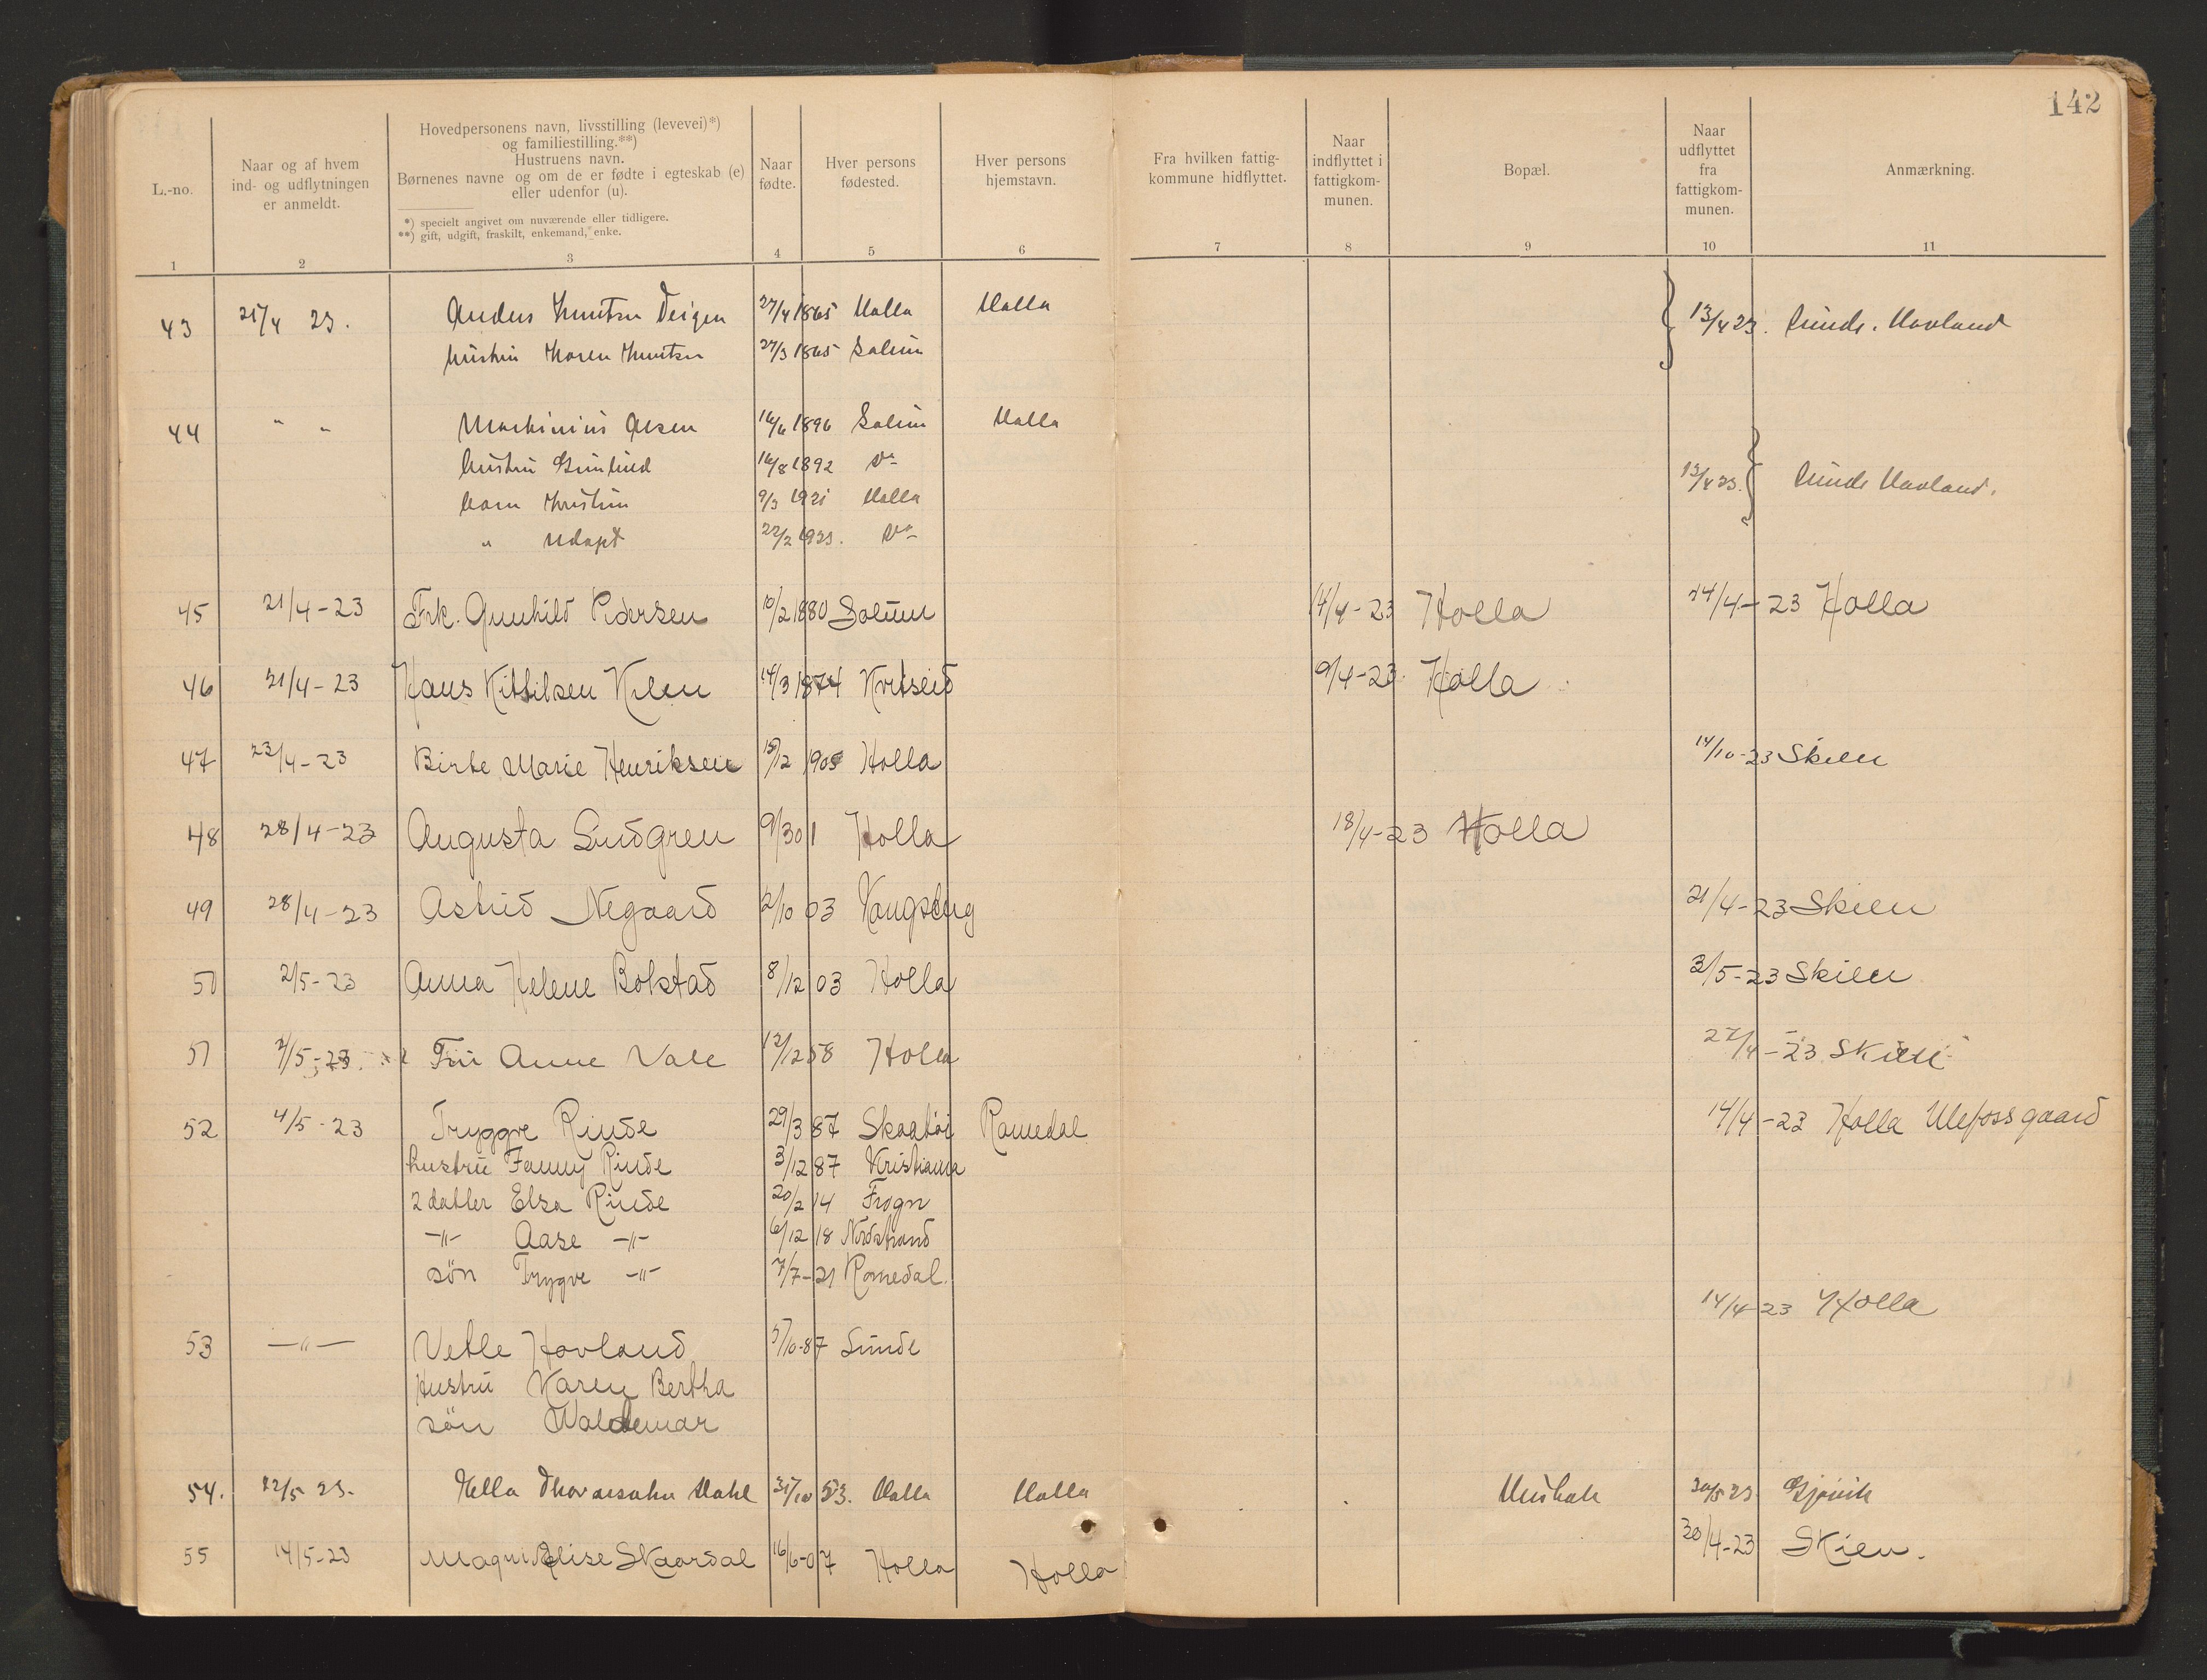 142
L.-no.
Naar og af hvem
ind- og udflytningen
er anmeldt.
Hovedpersonens navn, livsstilling (levevei)*)
og familiestilling.**)
Hustruens navn.
Børnenes navne og om de er fødte i egteskab (e)
eller udenfor (u).
*) specielt angivet om nuværende eller tidligere.
**) gift, udgift, fraskilt, enkemand, enke.
Naar
fødte.
Hver persons
fødested.
Hver persons
hjemstavn.
Fra hvilken fattig-
kommune hidflyttet.
Naar
indflyttet i
fattigkom-
munen.
Bopæl.
Naar
udflyttet
fra
fattigkom-
munen.
Anmærkning.
1 2 3 4 5 6 7 8 9 10 11
43 23. Anders Knutsen 27/4 1865 Holla Holla 13/4 23. Lunde. Hovland
hustru Karen Knutsen 27/3 1865 Solum
44 " " Olsen 16/6 1896 Solum Holla
hustru Gunhild 16/8 1892 Do 13/4 23. Lunde Hovland.
barn Kristin 9/3 1921 Holla
" Udøpt 22/2 1923. Do
45 21/4-23 Frk. Gunhild Pedersen 10/2 1880 Solum 14/4-23 Holla 14/4-23 Holla
46 21/4-23 Hans Kittilsen Kilen 14/3 1874 Kvitseid 9/4-23. Holla
47 23/4-23 Birte Marie Henriksen 1905 Holla 14/10-23 Skien
48 28/4-23 Augusta Lindgren 9/3 01 Holla 18/4-23 Holla
49 28/4-23 Astrid Negaard 2/10 03 Kongsberg 21/4-23 Skien
50 2/5-23 Anna Helene Bolstad 8/12 03 Holla 3/5-23 Skien
51 2/5-23 Fru Anne Vale 12/12 58 Holla 27/4-23 Skien
52 4/5-23 Tryggve Rinde 29/3 87 Skaatøi Romedal 14/4-23 Holla Ulefossgaard
hustru Fanny Rinde 3/12 87 Kristiania
2 døtler Elsa Rinde 20/2 14 Frogn
-"- Aase -"- 6/12 18 Nordstrand
søn Trygve -"- 7/7-21 Romedal.
14/4-23 Holla
53 -"- Vetle Hovland 5/10-87 Lunde
Hustru Karen Bertha
søn Waldemar
54. 22/5 23. Hella Dahl 31/10 53. Holla Holla 30/5 23. Gjøvik
55 14/5-23 Elise Skaardal 16/6-07 Holla Holla 30/4-23 Skien.